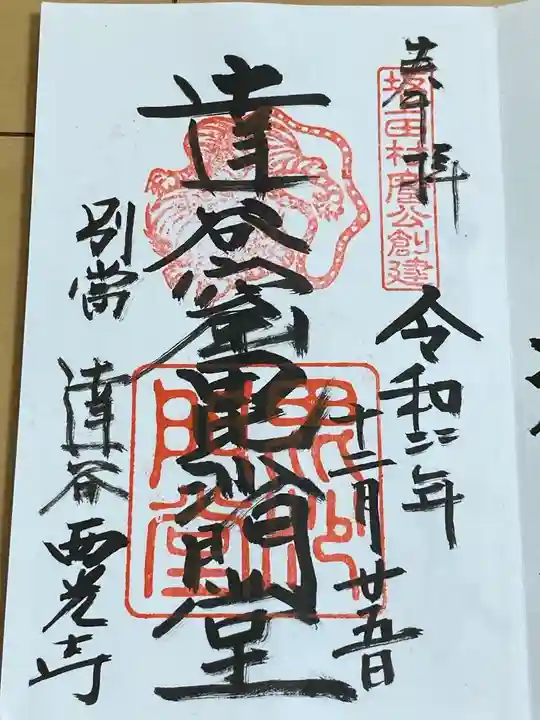 奉拝
坂上田村麿公創建
令和二年
十二月廿五日
達谷窟毘沙門堂
毘沙門堂
別當
達谷西光寺